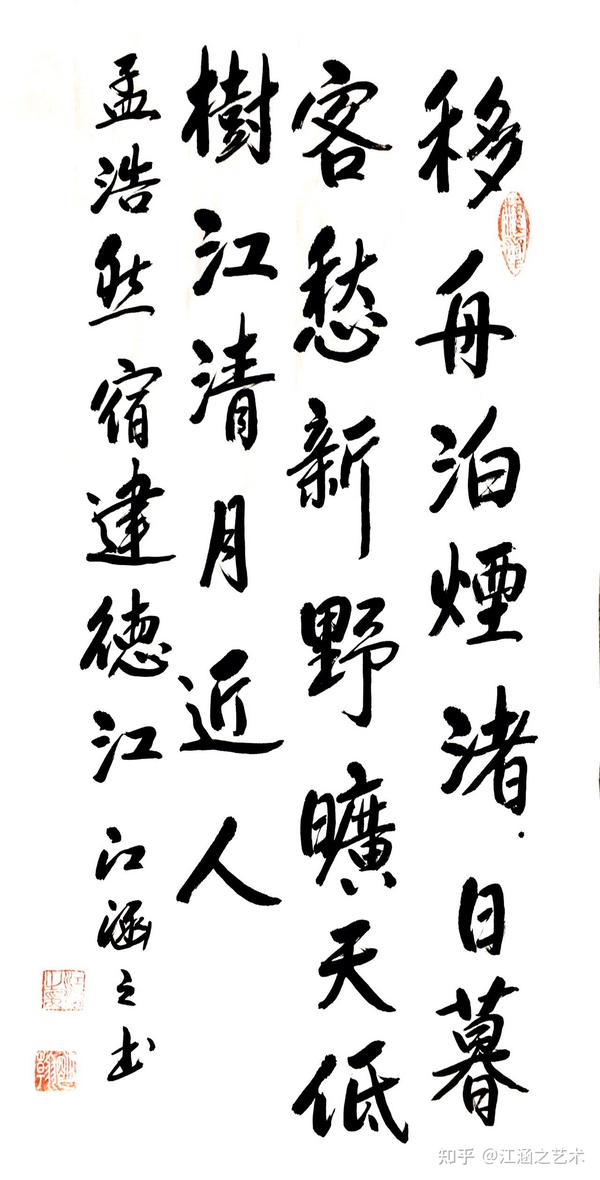 移舟泊煙渚日暮
客愁新野曠天低
樹江清月近人
孟浩然宿建德江 江涵之书
知乎 @江涵之艺术